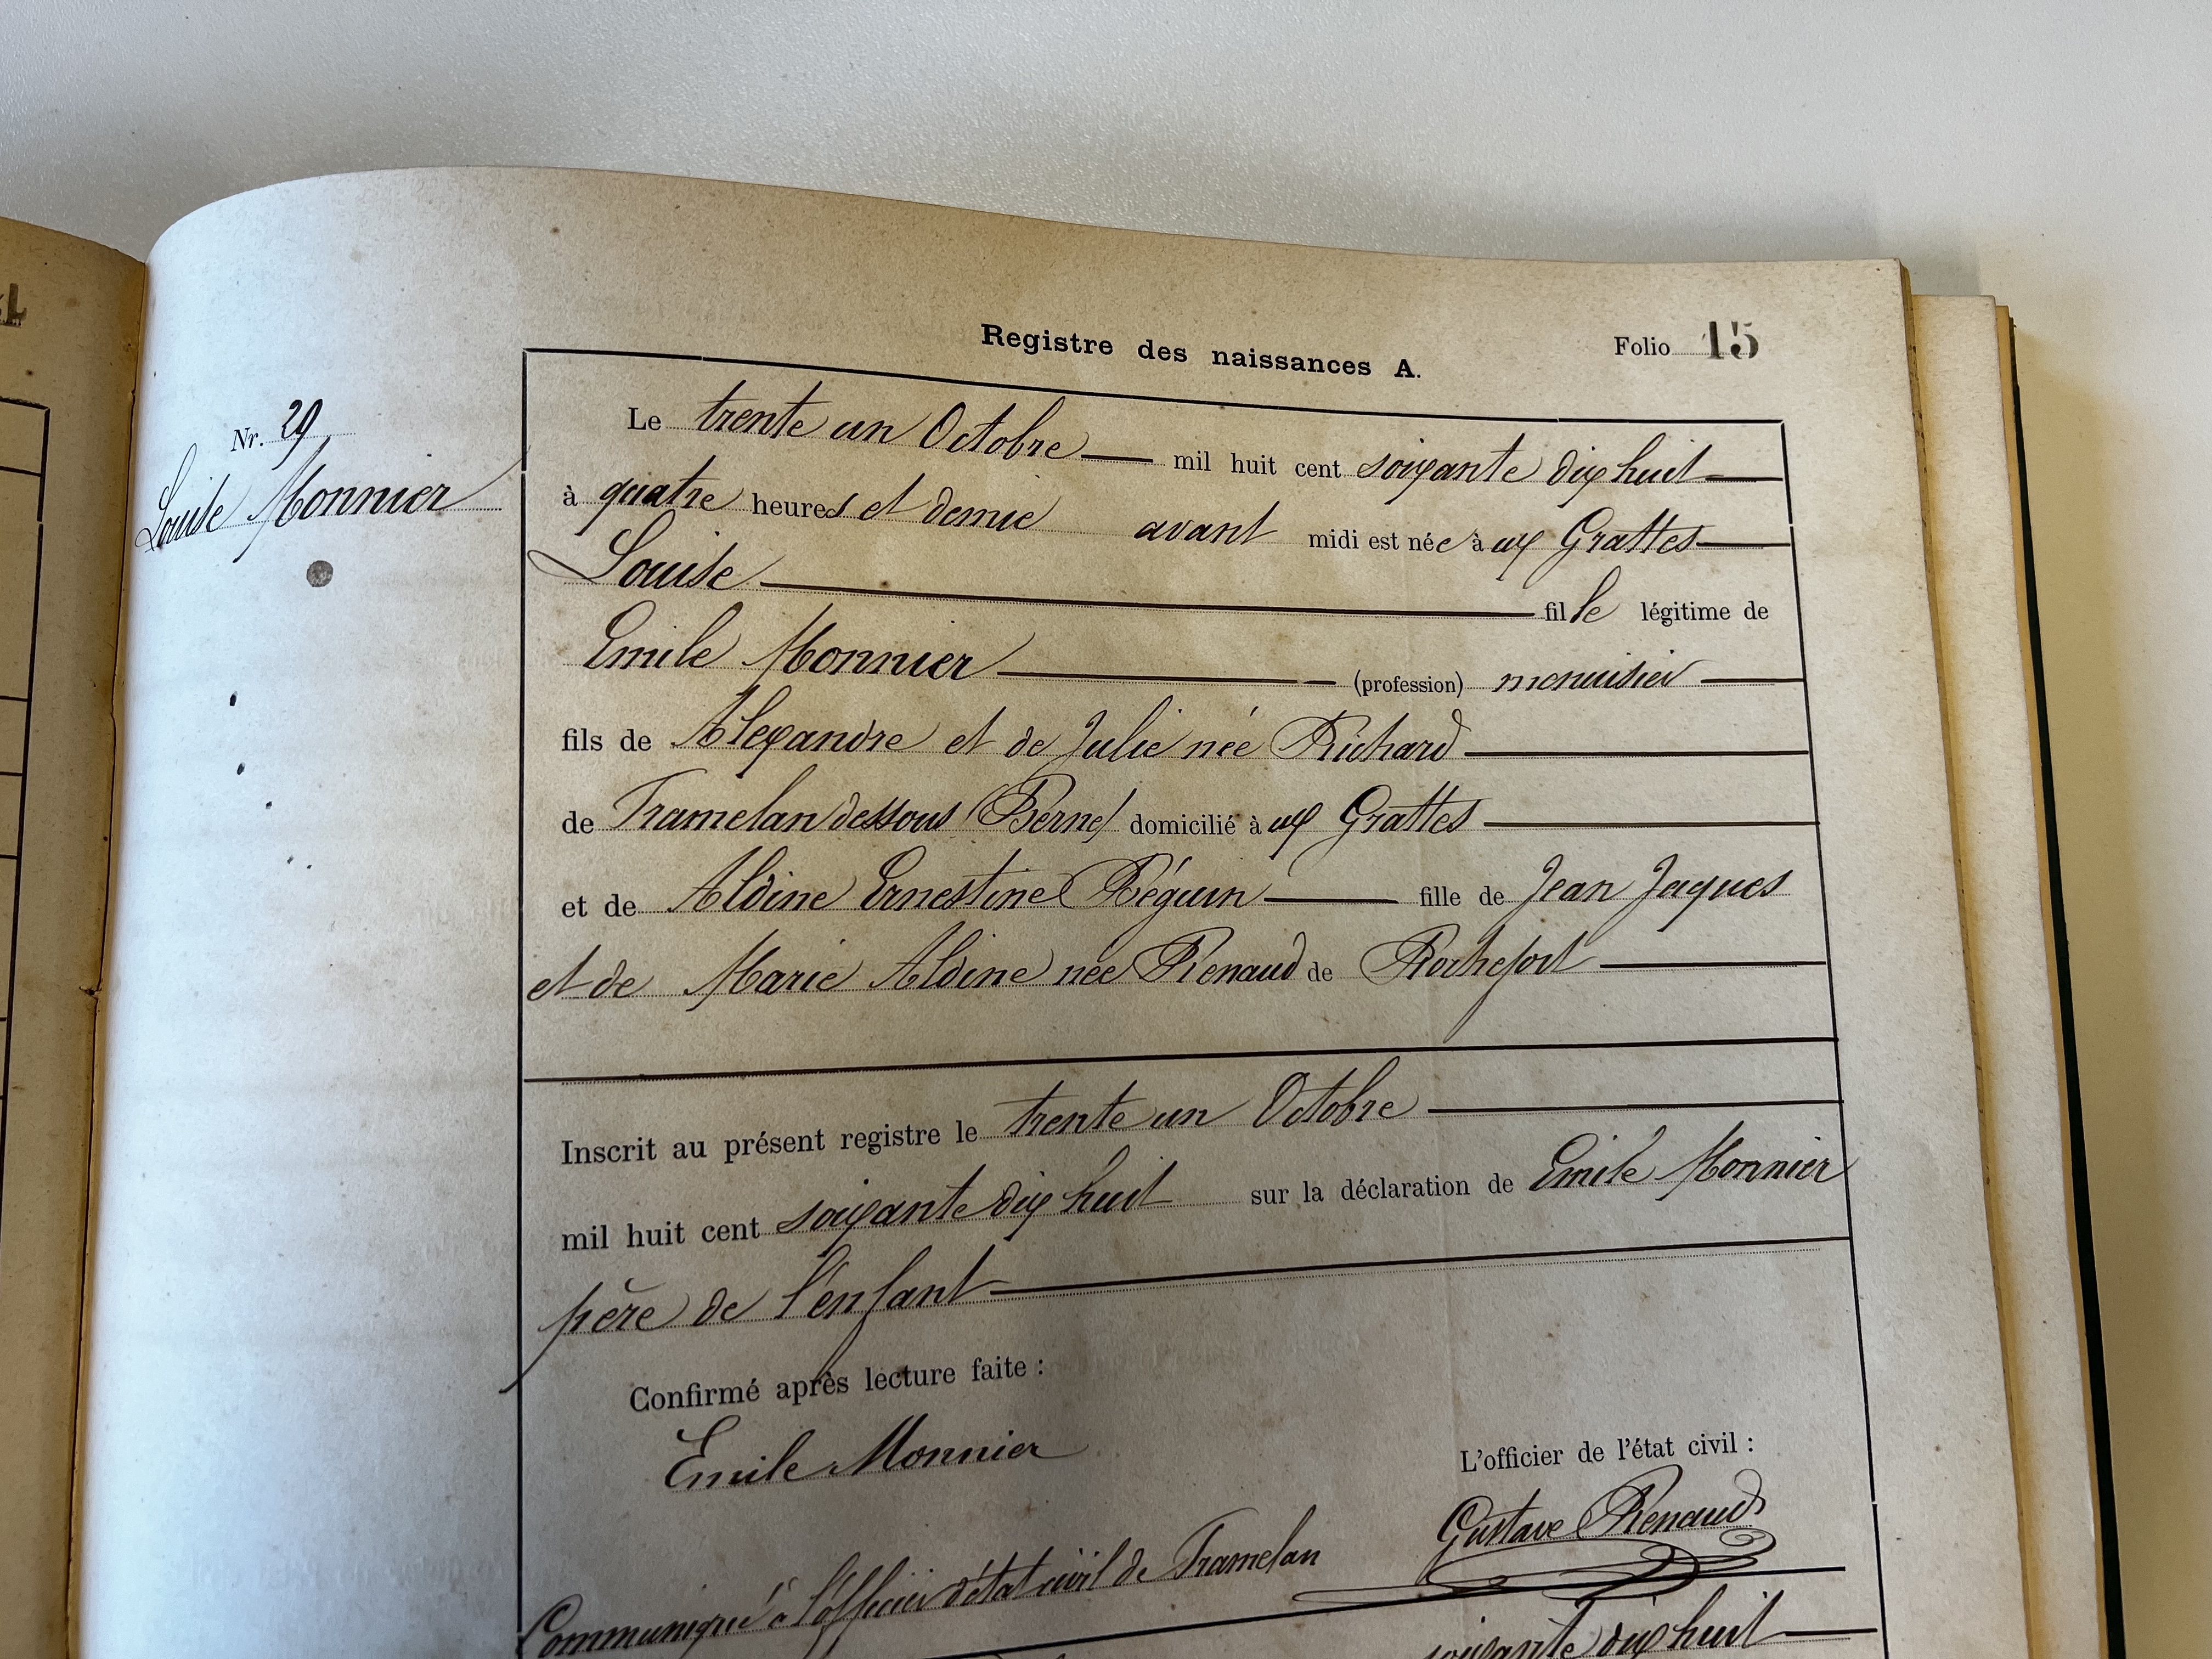 Registre des naissances A.
Folio 15
Nr. 29
Louise Monnier
Le trente un Octobre mil huit cent soixante dix huit
à quatre heures et demie avant midi est née à ux Grattes
Louise fille légitime de
Emile Monnier (profession) menuisier
fils de Alexandre et de Julie née Richard
de Tramelan dessous (Berne) domicilié à ux Grattes
et de Aldine Ernestine Béguin fille de Jean Jaques
et de Marie Aldine née Renaud de Rochefort
Inscrit au présent registre le trente un Octobre
mil huit cent soixante dix huit sur la déclaration de Emile Monnier
père de l'enfant
Confirmé après lecture faite :
Emile Monnier
L'officier de l'état civil :
Gustave Renaud
Communiqué à l'officier d'état civil de Tramelan
soixante dix huit